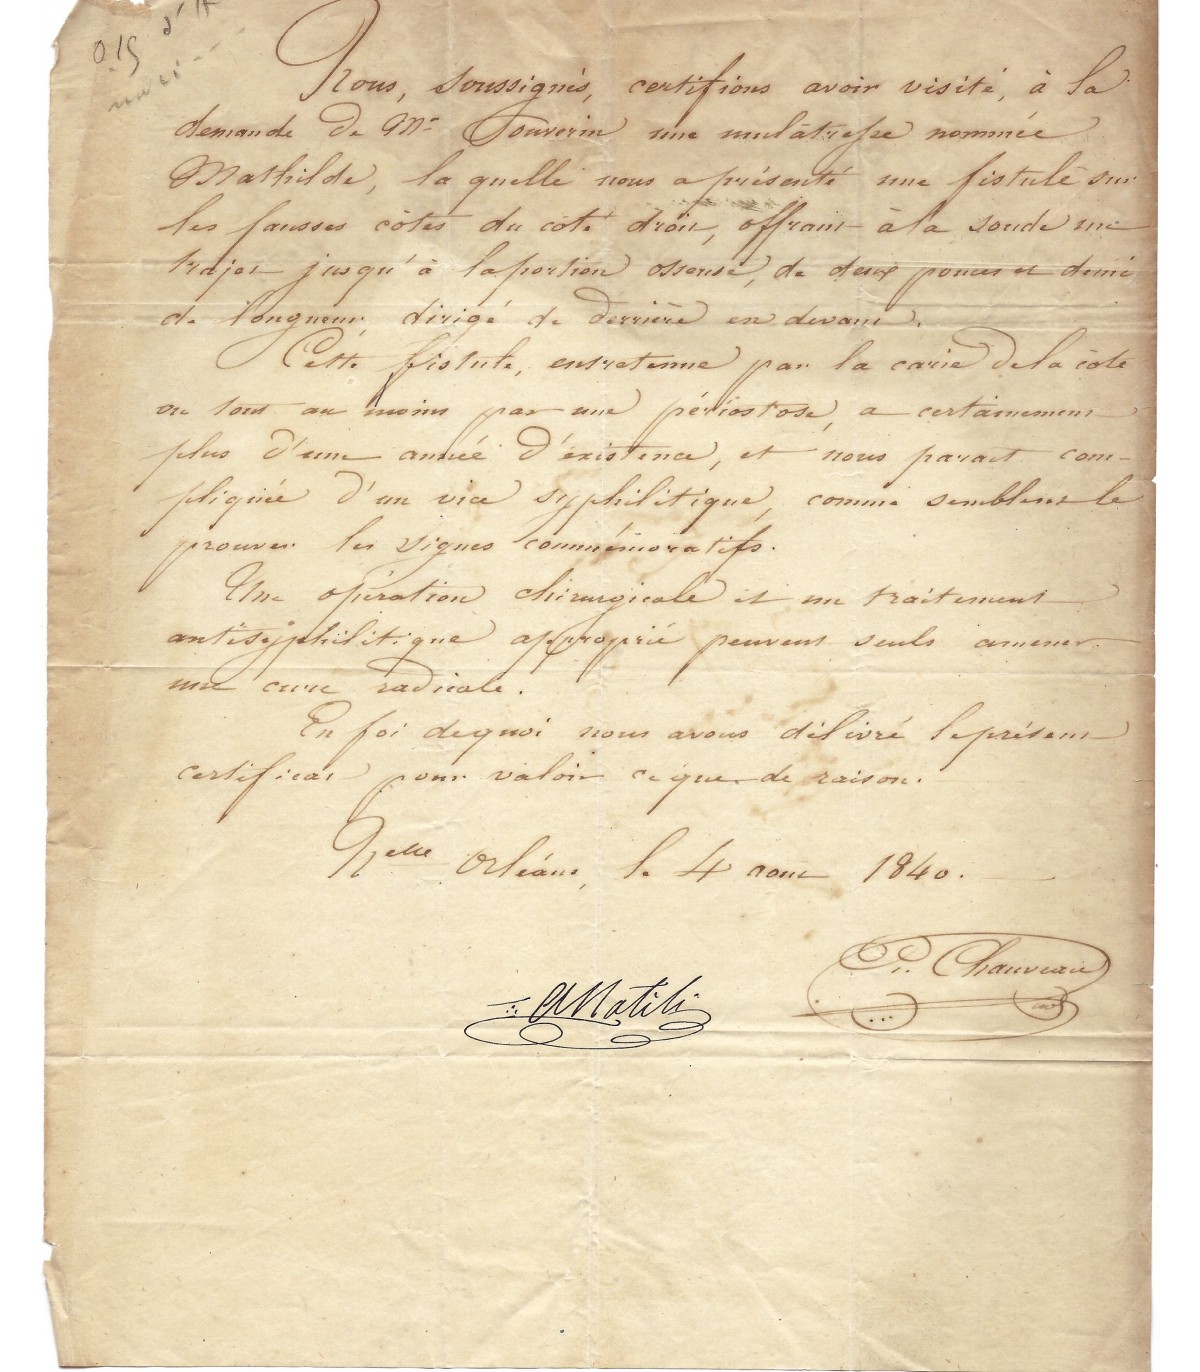 0.15
Nous, soussignés, certifions avoir visité, à la
demande de Mr Touverin une mulâtresse nommée
Mathilde, la quelle nous a présenté une fistule sur
les fausses côtes du coté droit, offrant à la sonde un
trajet jusqu'à la portion osseuse, de deux pouces et demi
de longueur, dirigé de derrière en devant.
Cette fistule, entretenue par la carie de la côte
ou tout au moins par une périostose, a certainement
plus d'une année d'éxistence, et nous parait com-
pliquée d'un vice syphilitique, comme semblent le
prouver les signes commémoratifs.
Une opération chirurgicale et un traitement
antisyphilitique approprié peuvent seuls amener
une cure radicale.
En foi de quoi nous avons délivré le présent
certificat pour valoir ce que de raison.
Nelle Orléans, le 4 aout 1840.
Chauveau